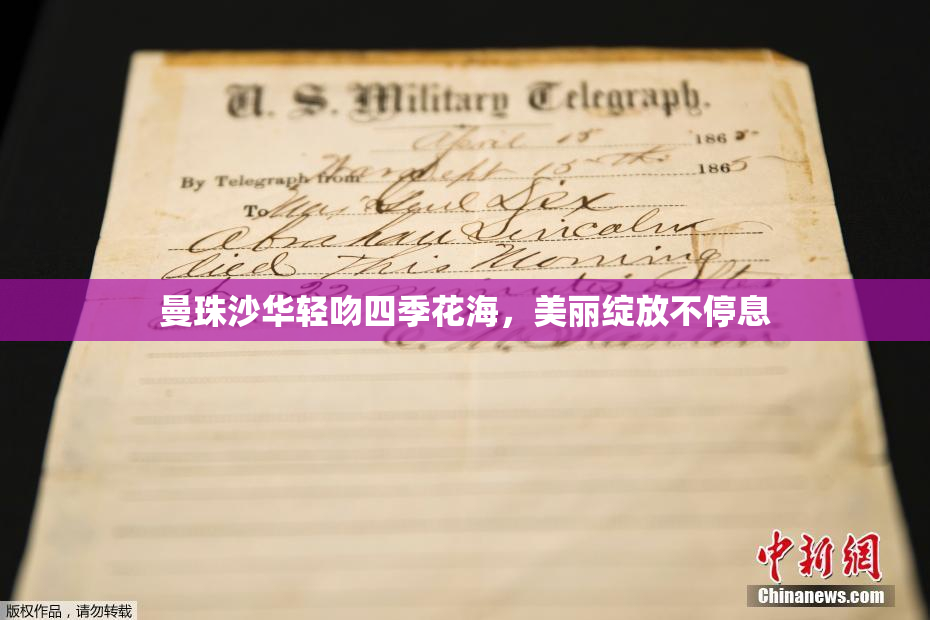 U. S. Military Telegraph.
April 15 1865
By Telegraph from War Dept 15th 1865
To Maj Genl Dix
Abraham Lincoln
died This Morning
at 22 minutes after
曼珠沙华轻吻四季花海，美丽绽放不停息
E. M. Stanton
中新网
Chinanews.com
版权作品，请勿转载